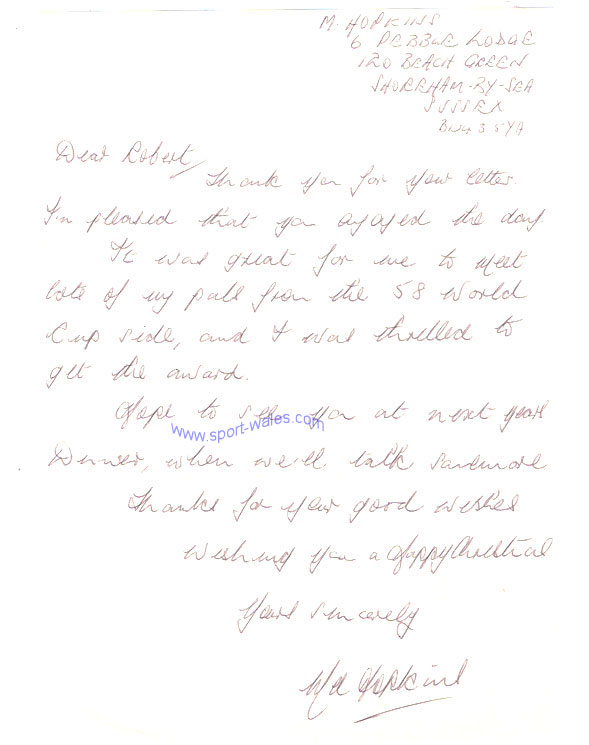 M. HOPKINS
6 PEBBLE LODGE
120 BEACH GREEN
SHOREHAM-BY-SEA
SUSSEX
BN43 5YA
Dear Robert,
Thank you for your letter.
I'm pleased that you enjoyed the day
It was great for me to meet
lots of my pals from the 58 World
Cup side, and I was thrilled to
get the award.
Hope to see you at next years
www.sport-wales.com
Dinner, when we'll talk some more
Thanks for your good wishes
Wishing you a Happy Christmas
Yours sincerely
Mel Hopkins